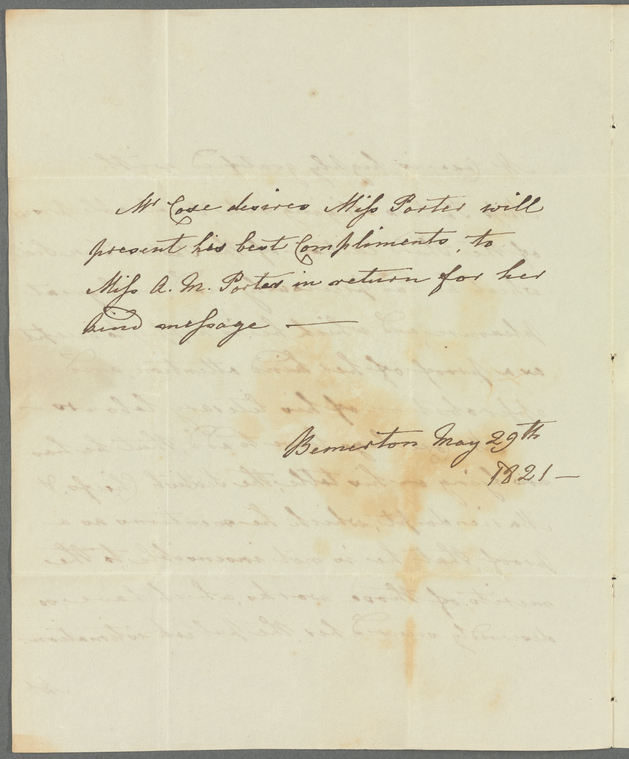 Mr Coxe desires Miss Porter will
present his best Compliments, to
Miss A. M. Porter in return for her
kind message —
Bemerton May 29th
1821 —